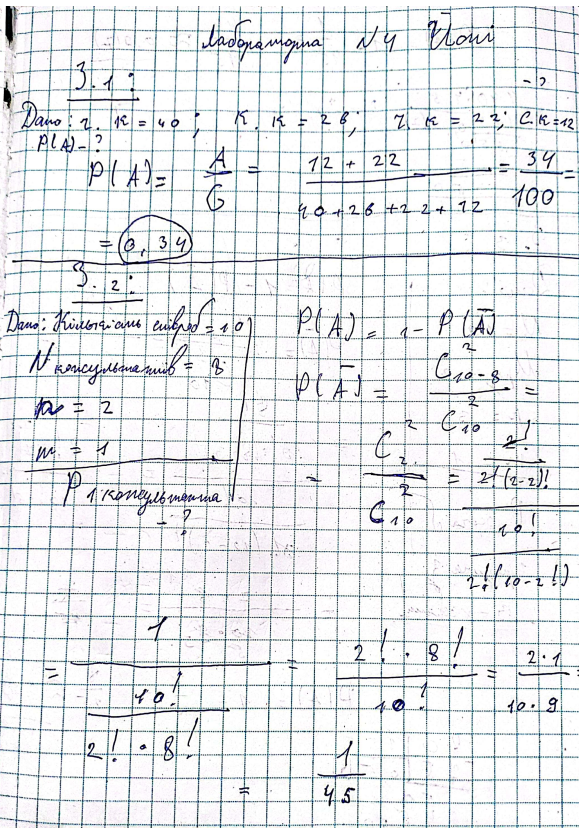 Лабораторна N 4
- ?
З. 1 :
Дано: г. к = 40; К. К = 26; Ч. к = 22; С.К=12
P(A) - ?
P(A) = A/G = (12 + 22)/(40+26+22+12) = 34/100 =
= 0,34
З. 2 :
Дано: Кількість = 10
N консультантів = 8
= 2
m = 1
P 1 консультанта
- ?
P(A) = 1 - P(Ā)
P(Ā) = C²₁₀₋₈/C²₁₀ =
= C²₂/C²₁₀ = (2!/(2!(2-2)!))/(10!/(2!(10-2!)))
= 1/(10!/(2! · 8!)) = (2! · 8!)/10! = (2·1)/(10·9) =
= 1/45